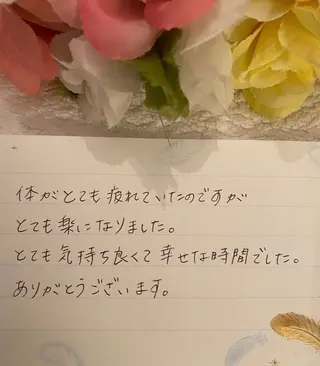 体がとても疲れていたのですが
とても楽になりました。
とても気持ち良くて幸せな時間でした。
ありがとうございます。